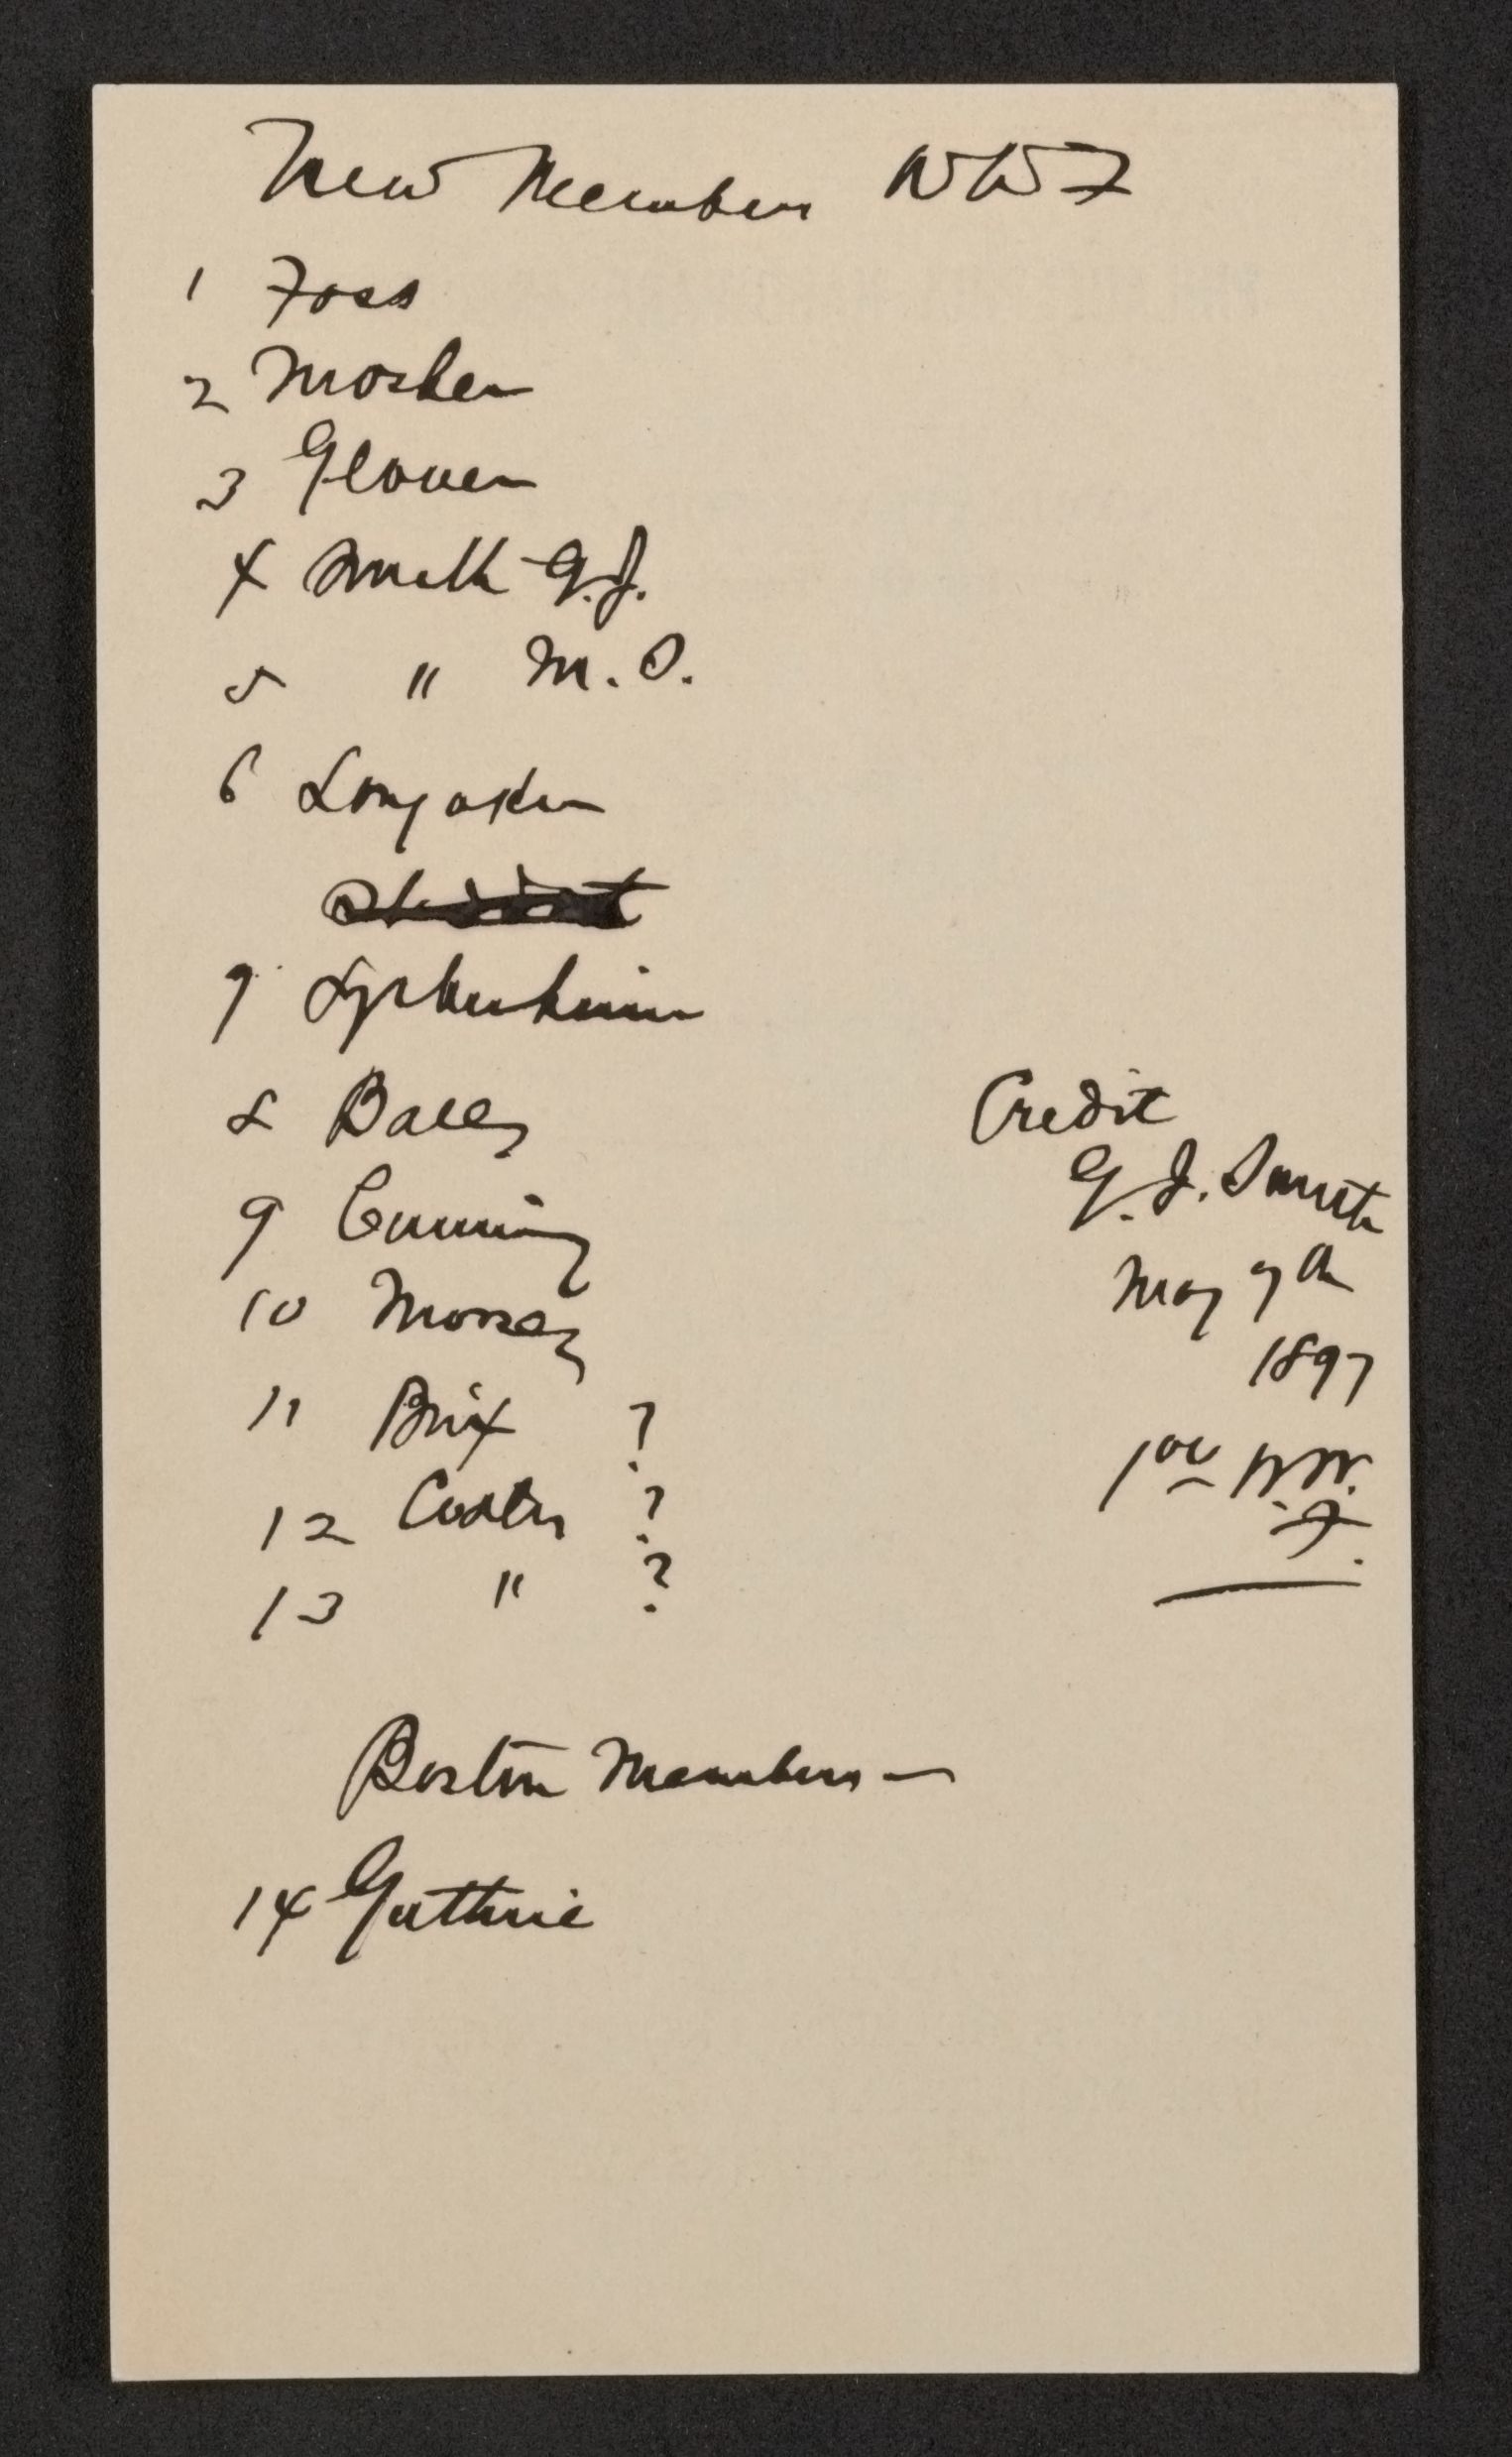 New Members WWF
1 Foss
2 Mosher
3 Glover
4 Smith G.J.
5 " M.S.
6 Longaker
7
8
9
10
11 Brix ?
12 ?
13 " ?
Credit
G.J. Smith
May 7th
1897
1 00 W.W.
F.
Boston Members —
14 Guthrie